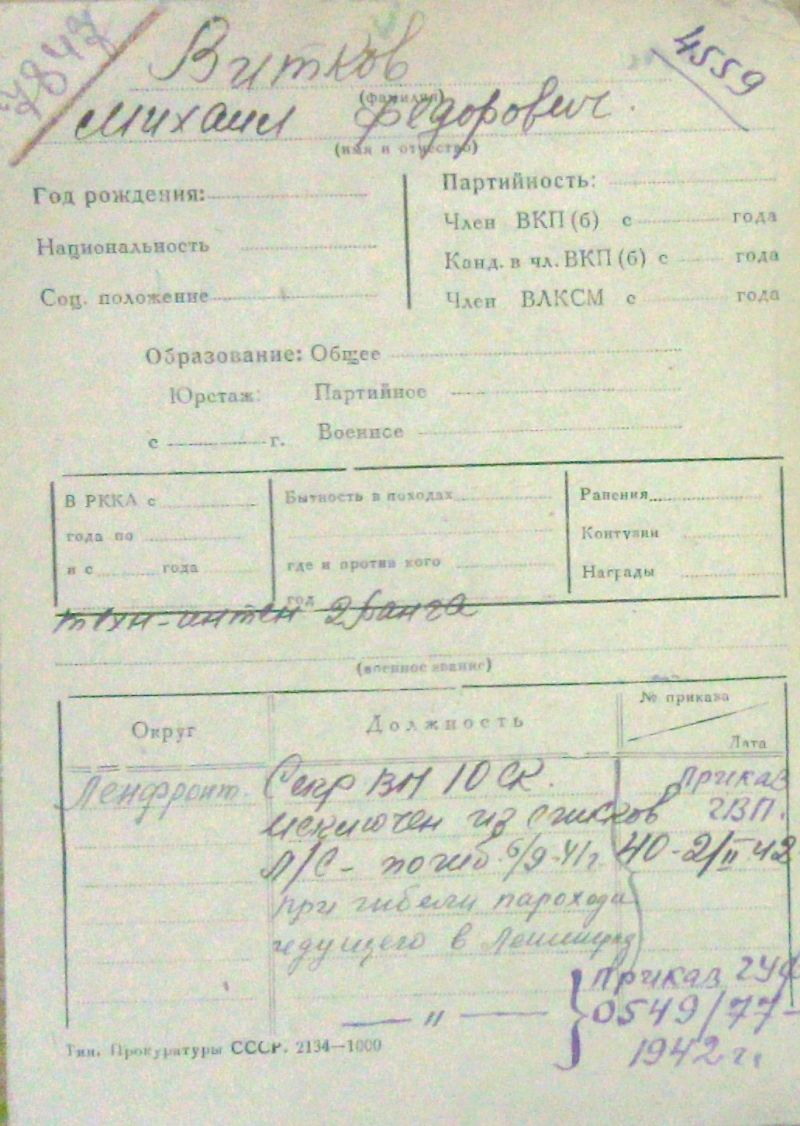 4559
Витков
(фамилия)
Михаил Федорович.
(имя и отчество)
Год рождения:
Национальность
Соц. положение
Партийность:
Член ВКП (б) с года
Канд. в чл. ВКП (б) с года
Член ВЛКСМ с года
Образование: Общее
Юрстаж: Партийное
с г. Военное
В РККА с
года по
и с года
Бытность в походах
где и против кого
год
Ранения
Контузии
Награды
техн-интен 2 ранга
(военное звание)
Округ Должность № приказа
Дата
Ленфронт. Секр ВП 10 СК. Приказ
исключен из списков ГВП.
Л/С - погиб 6/9-41 г. 40-2/II 42
при гибели парохода
идущего в Ленинград
— " — Приказ
0549/77-
1942 г.
Тип. Прокуратуры СССР. 2134—1000